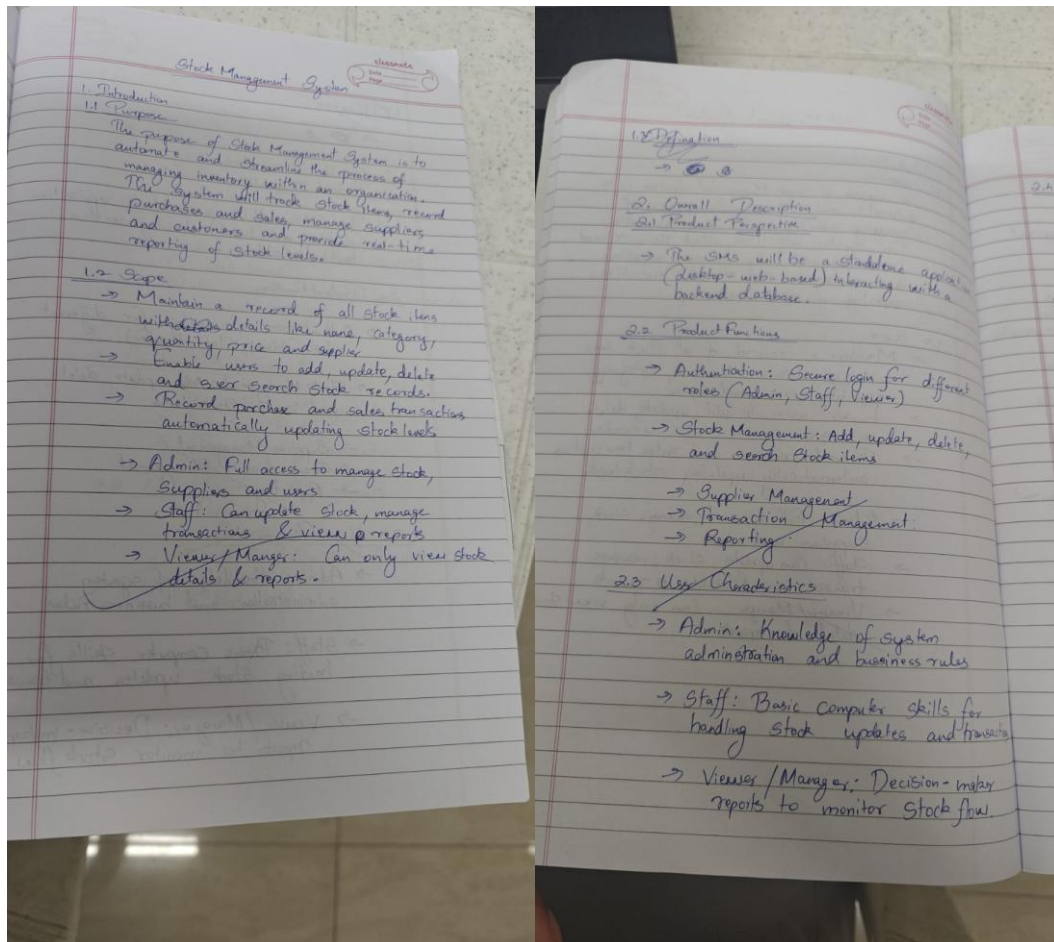 Stock Management System
classmate
Date
Page
1. Introduction
1.1 Purpose
The purpose of Stock Management System is to
automate and streamline the process of
managing inventory within an organization.
The System will track stock items, record
purchases and sales, manage suppliers
and customers and provide real-time
reporting of stock levels.
1.2 Scope
→ Maintain a record of all stock items
with details like name, category,
quantity, price and supplier
→ Enable users to add, update, delete
and search stock records.
→ Record purchase and sales transactions
automatically updating stock levels
→ Admin: Full access to manage stock,
Suppliers and users
→ Staff: Can update stock, manage
transactions & view reports
→ Viewer/Manger: Can only view stock
details & reports.
classmate
Date
Page
1.3 Defination
→
2. Overall Description
2.1 Product Perspective
→ The SMS will be a standalone application
(desktop-web-based) interacting with a
backend database.
2.2 Product Functions
→ Authentication: Secure login for different
roles (Admin, Staff, Viewer)
→ Stock Management: Add, update, delete,
and search Stock items
→ Supplier Management
→ Transaction Management
→ Reporting
2.3 User Characteristics
→ Admin: Knowledge of system
adminstration and bussiness rules
→ Staff: Basic computer skills for
handling stock updates and transactio
→ Viewer/Manager: Decision-maker
reports to monitor Stock flow.